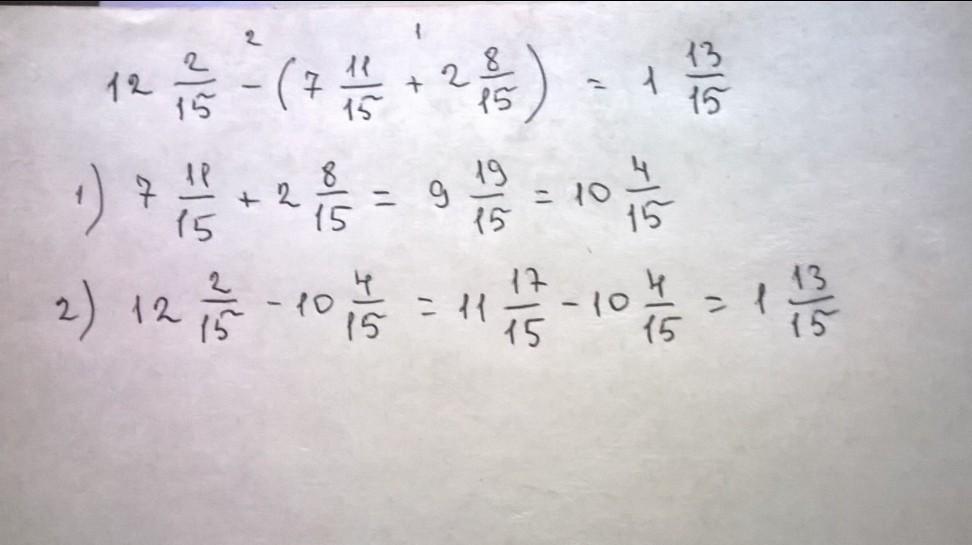 12 2/15 - (7 11/15 + 2 8/15) = 1 13/15
1) 7 11/15 + 2 8/15 = 9 19/15 = 10 4/15
2) 12 2/15 - 10 4/15 = 11 17/15 - 10 4/15 = 1 13/15